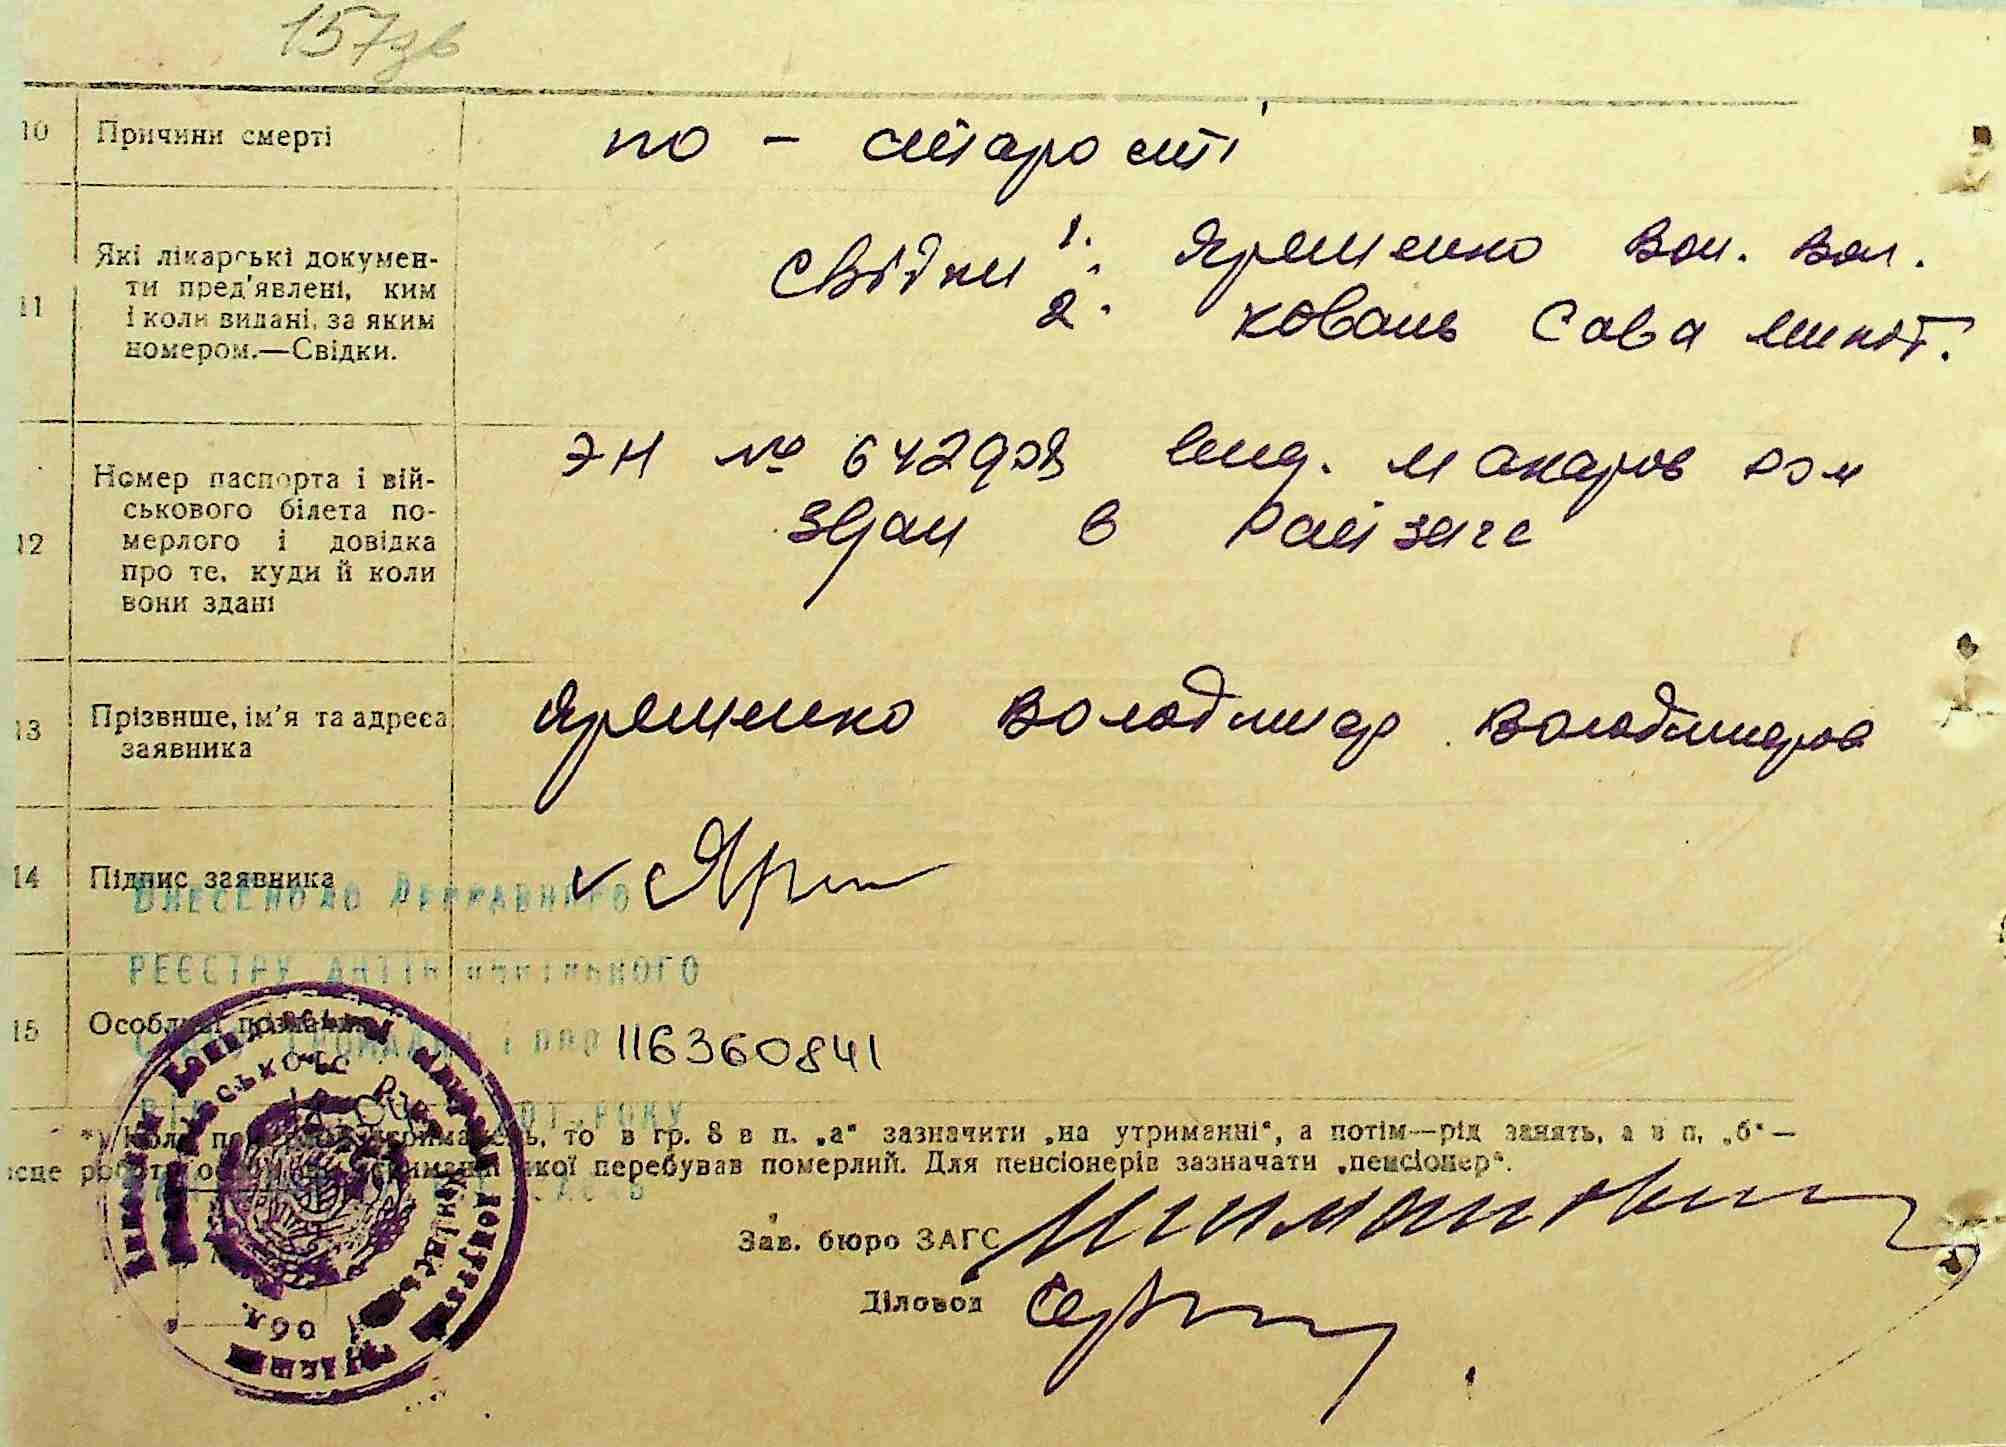 157зв
10 Причини смерті по - старості
11 Які лікарські докумен-
ти пред'явлені, ким
і коли видані, за яким
номером.—Свідки.
Свідки 1. Яременко Вол. Вол.
2. Коваль Сава Микит.
12 Номер паспорта і вій-
ськового білета по-
мерлого і довідка
про те, куди й коли
вони здані
ЭН № 642908 вид. Макаров РОМ
здан в Райзагс
13 Прізвище, ім'я та адреса
заявника
Яременко Володимир Володимиров
14 Підпис заявника
Внесено до Державного
реєстру
15 Особливі 116360841
року
*У колі то в гр. 8 в п. „а“ зазначити „на утриманні“, а потім—рід занять, а в п, „б“—
ісце якої перебував померлий. Для пенсіонерів зазначати „пенсіонер“.
Зав. бюро ЗАГС
Діловод
обл.